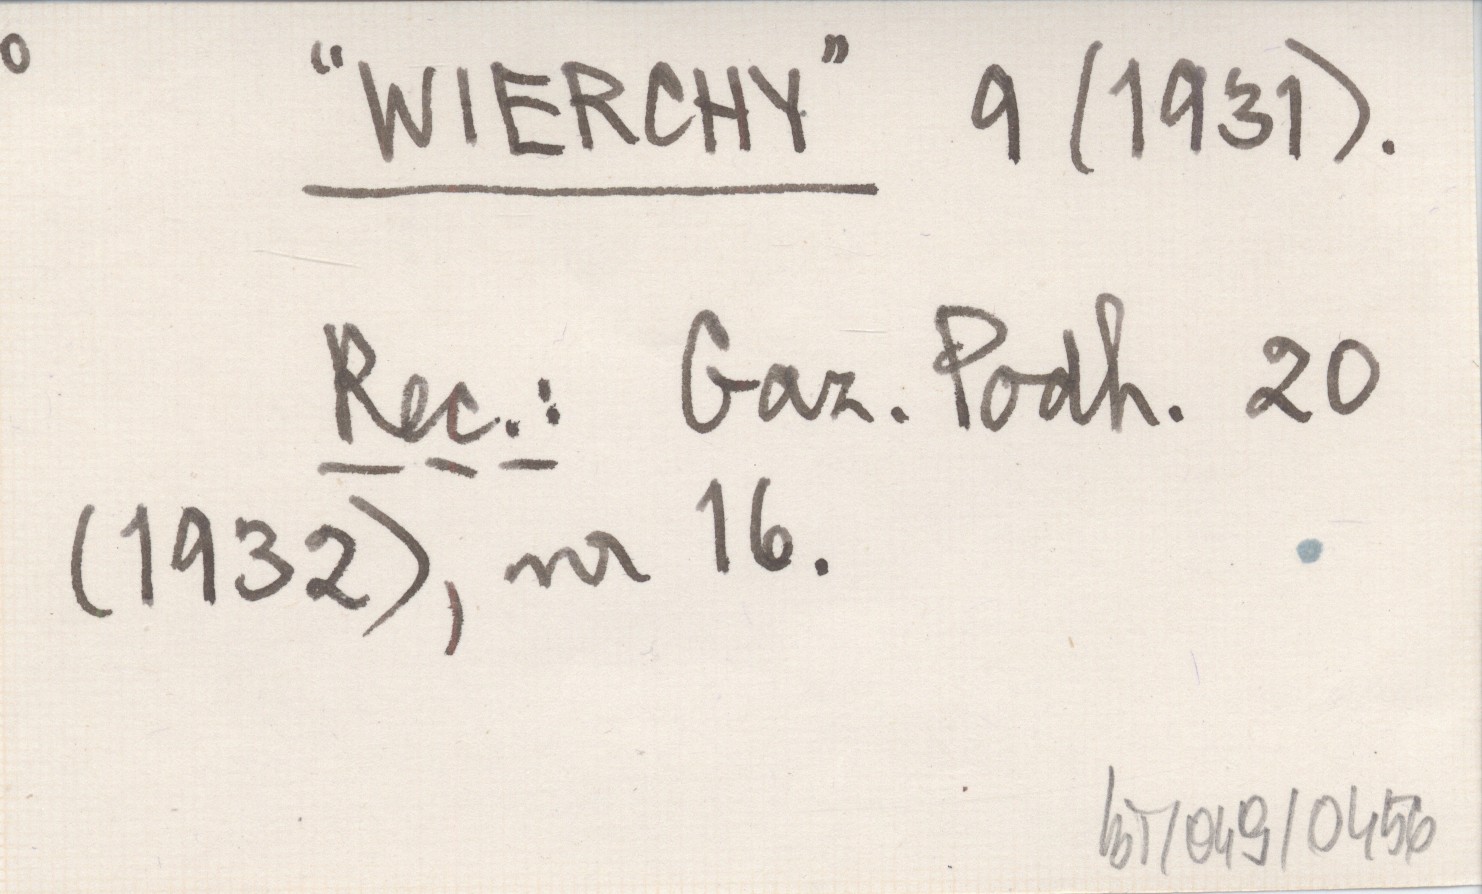 o "WIERCHY" 9 (1931).
Rec.: Gaz. Podh. 20
(1932), nr 16.
bT/049/0456